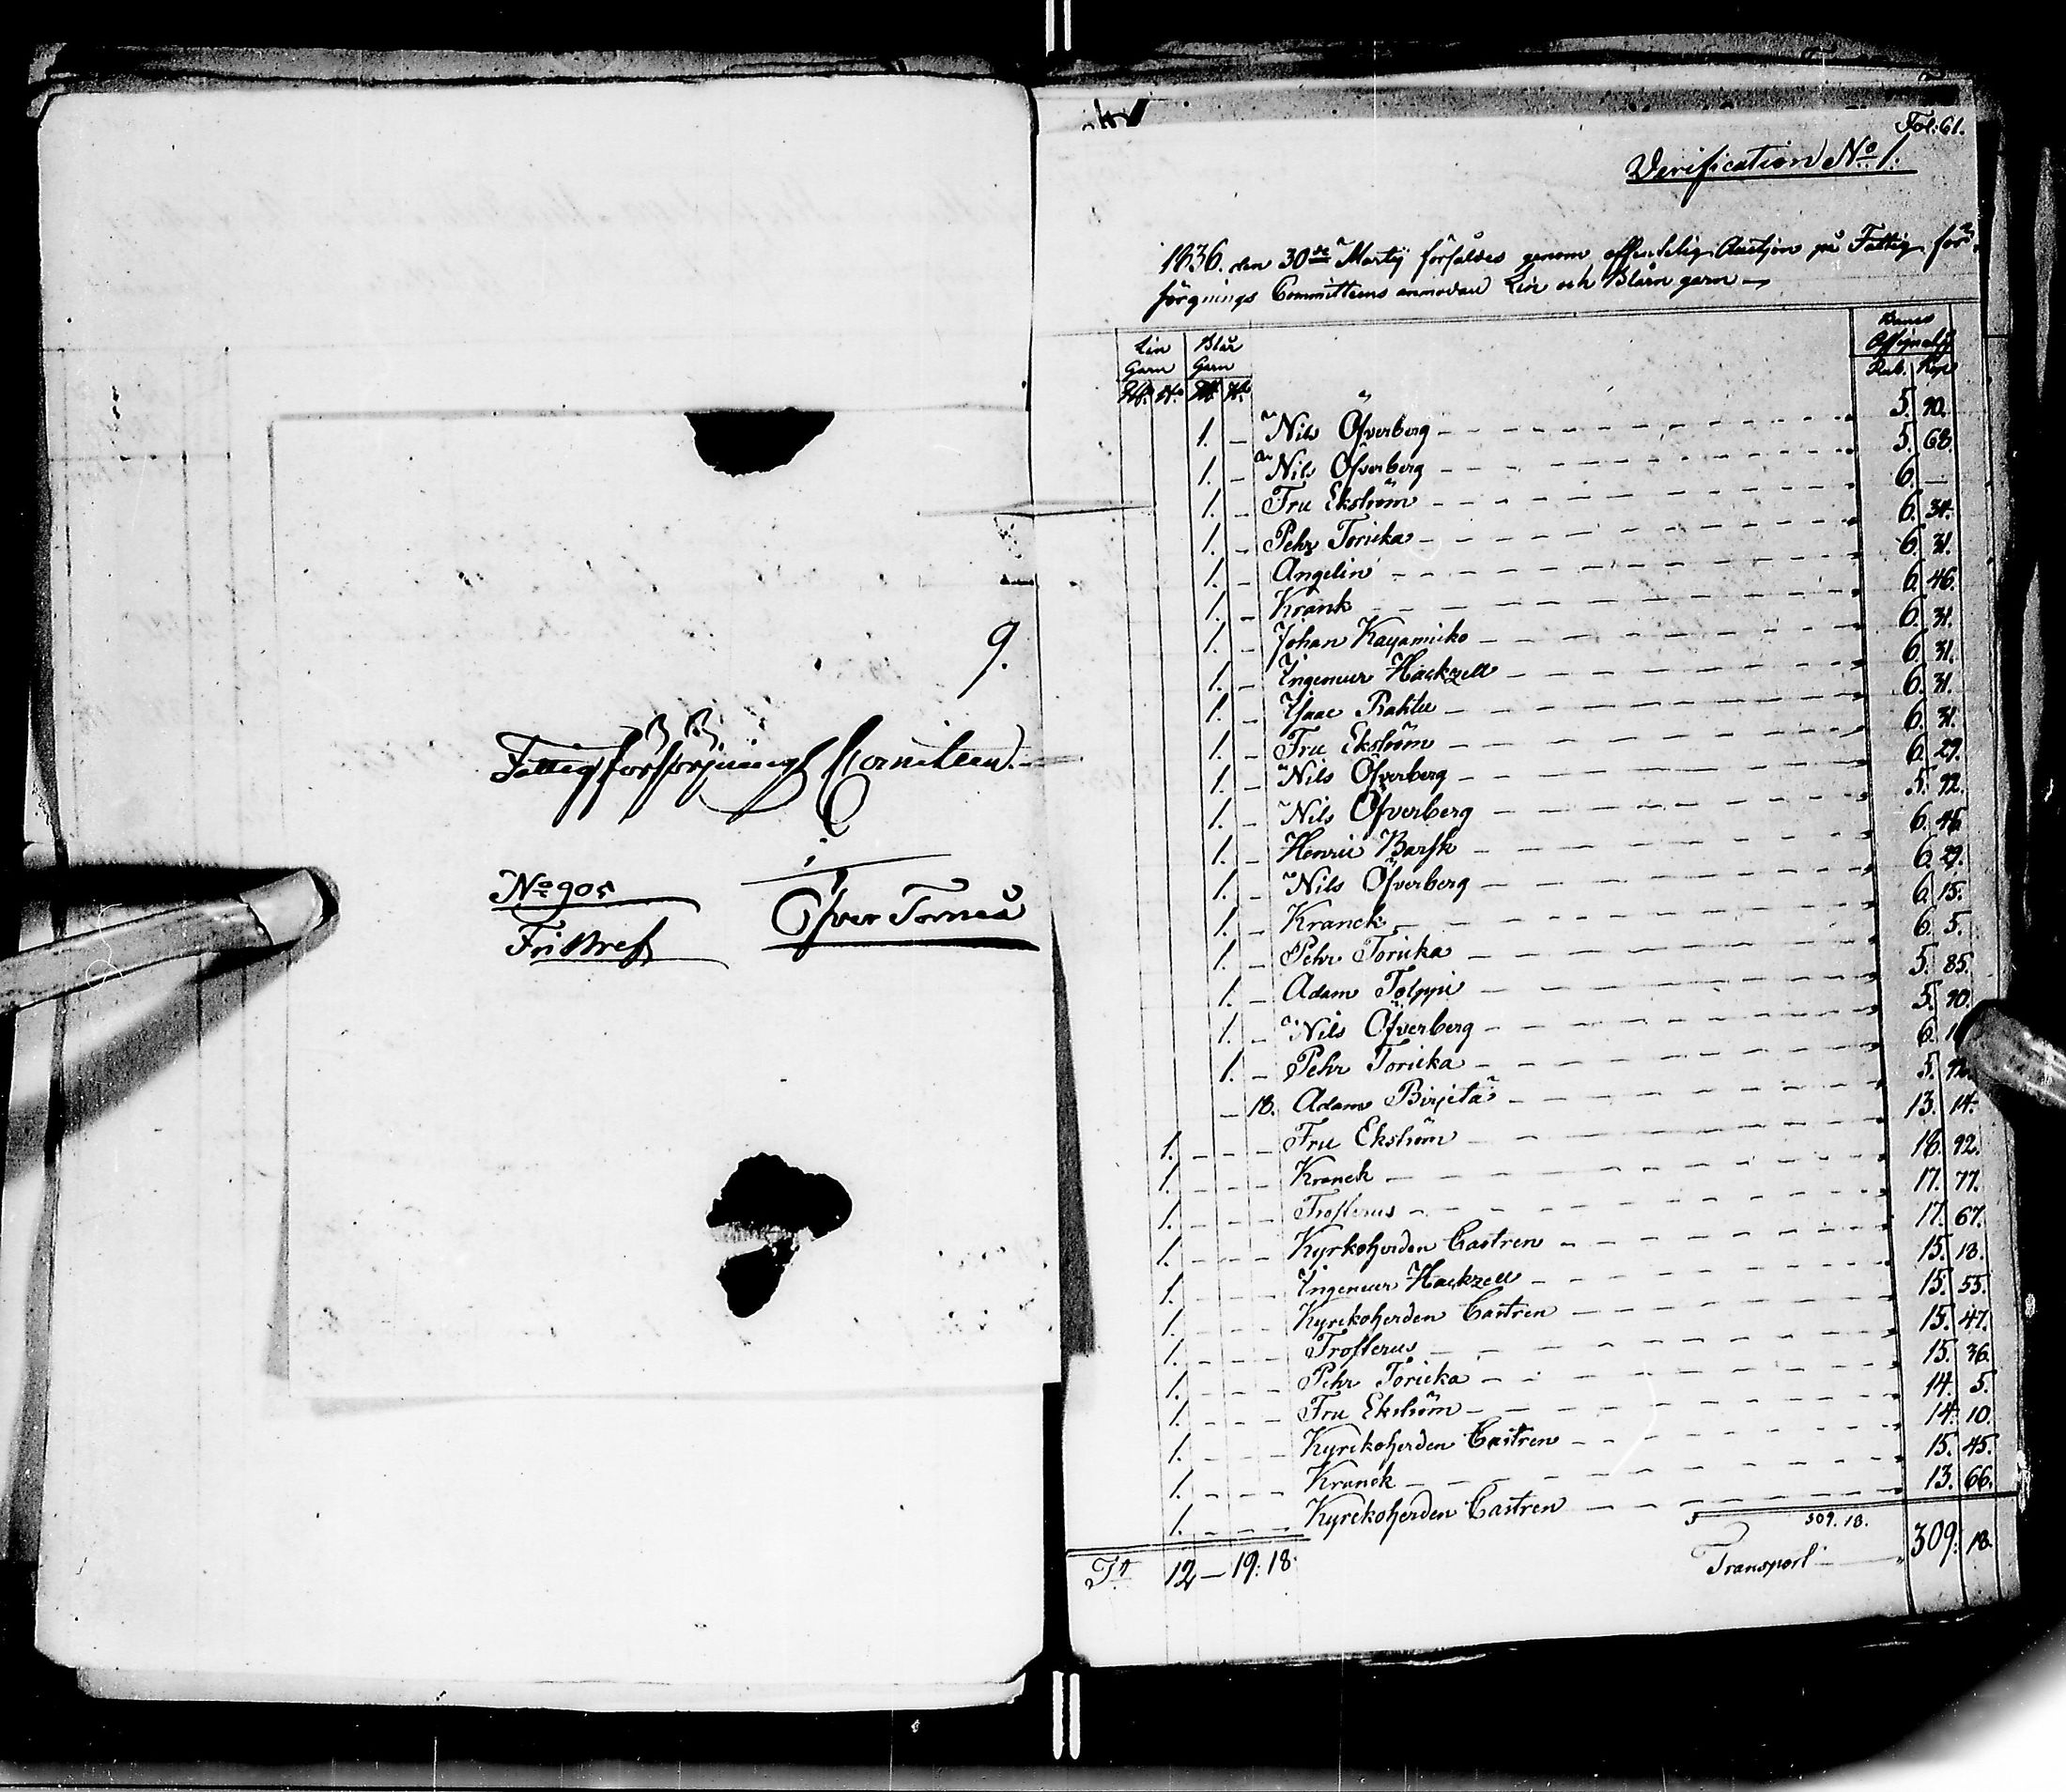 9.
Fattigförsörjnings Comiteen.
i
No 905
Öfver Torneå
Fri Bref
Fol: 61.
Verification No 1.
1836. den 30de Martij försåldes genom offentelig Auctjon på Fattig för-
sörgnings Committeens anmodan Lin och Blårn garn
Lin Garn Blår Garn Banco Assignat.
Rub. Kop.
1. – Nils Öfverberg 5. 90.
1. – Nils Öfverberg 5. 68.
1. – Fru Ekström 6. –
1. – Pehr Toricka 6. 34.
1. – Angelin 6. 31.
1. – Krank 6. 46.
1. – Johan Kayamiko 6. 31.
1. – Ingenieur Hackzell 6. 31.
1. – Isaac Rahtu 6. 31.
1. – Fru Ekström 6. 31.
1. – Nils Öfverberg 6. 29.
1. – Nils Öfverberg 5. 92.
1. – Henric Barsk 6. 46.
1. – Nils Öfverberg 6. 29.
1. – Kranck 6. 15.
1. – Pehr Toricka 6. 5.
1. – Adam Tolppi 5. 85.
1. – Nils Öfverberg 5. 90.
1. – Pehr Toricka 6.
– 18. Adam Birjeta 5.
1. – – – Fru Ekström 13. 14.
1. – – – Kranck 18. 92.
1. – – – Frosterus 17. 77.
1. – – – Kyrkoherden Castren 17. 67.
1. – – – Ingenieur Hackzell 15. 18.
1. – – – Kyrckoherden Castren 15. 55.
1. – – – Frosterus 15. 47.
1. – – – Pehr Toricka 15. 36.
1. – – – Fru Ekström 14. 5.
1. – – – Kyrckoherden Castren 14. 10.
1. – – – Kranck 15. 45.
1. – – – Kyrckoherden Castren 13. 66.
309. 18.
Tt 12 – 19: 18. Transport 309. 18.